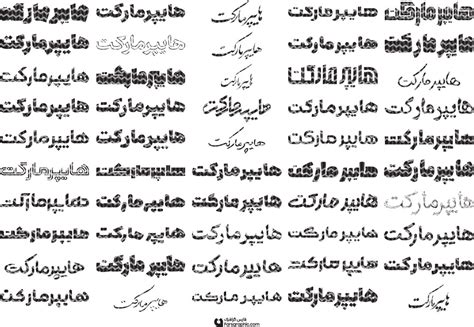 هایپرمارکت هایپرمارکت هایپرمارکت هایپرمارکت هایپرمارکت
هایپرمارکت هایپرمارکت هایپرمارکت هایپرمارکت هایپرمارکت
هایپرمارکت هایپرمارکت هایپرمارکت هایپرمارکت هایپرمارکت
هایپرمارکت هایپرمارکت هایپرمارکت هایپرمارکت هایپرمارکت
هایپرمارکت هایپرمارکت هایپرمارکت هایپرمارکت هایپرمارکت
هایپرمارکت هایپرمارکت هایپرمارکت هایپرمارکت هایپرمارکت
هایپرمارکت هایپرمارکت هایپرمارکت هایپرمارکت هایپرمارکت
هایپرمارکت هایپرمارکت هایپرمارکت هایپرمارکت هایپرمارکت
هایپرمارکت هایپرمارکت هایپرمارکت هایپرمارکت هایپرمارکت
هایپرمارکت هایپرمارکت هایپرمارکت هایپرمارکت هایپرمارکت
فارس گرافیک
Farsgraphic.com